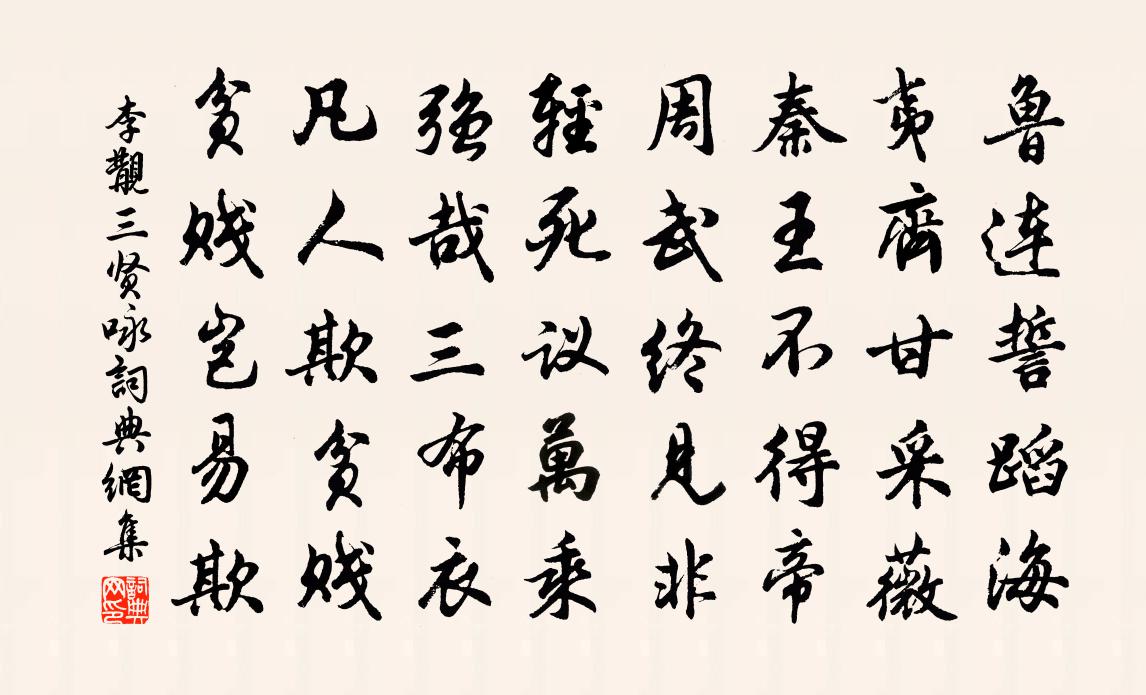 魯连誓蹈海
夷齊甘采薇
秦王不得帝
周武终見非
輕死议萬乘
强哉三布衣
凡人欺贫贱
贫贱岂易欺
李覯三贤咏詞典網集